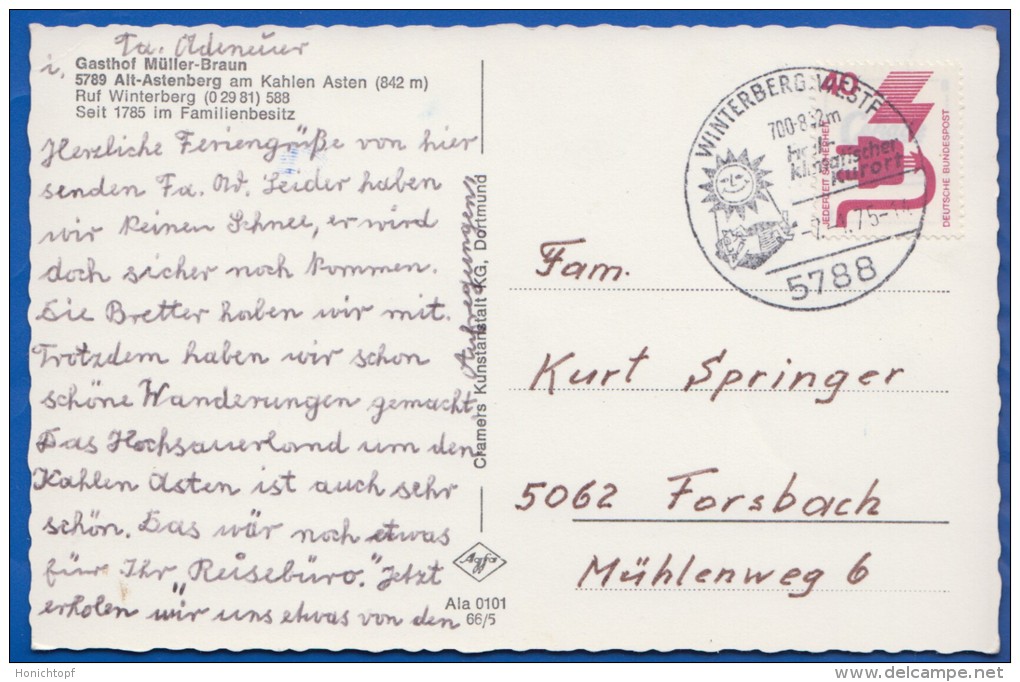 Fa. Adeneuer
i.
Gasthof Müller-Braun
5789 Alt-Astenberg am Kahlen Asten (842 m)
Ruf Winterberg (0 29 81) 588
Seit 1785 im Familienbesitz
Herzliche Feriengrüße von hier
senden Fa. Ad. Leider haben
wir keinen Schnee, er wird
doch sicher noch kommen.
Die Bretter haben wir mit.
Trotzdem haben wir schon
schöne Wanderungen gemacht.
Das Hochsauerland um den
Kahlen Asten ist auch sehr
schön. Das wär noch etwas
für Ihr "Reisebüro." Jetzt
erholen wir uns etwas von den
Aufregungen.
Cramers Kunstanstalt KG, Dortmund
Agfa
Ala 0101
66/5
WINTERBERG, WESTF
700-842m
Heilklimatischer
Kurort
.75-
5788
40
JEDERZEIT SICHERHEIT
DEUTSCHE BUNDESPOST
Fam.
Kurt Springer
5062 Forsbach
Mühlenweg 6
Honichtopf
www.delcampe.net